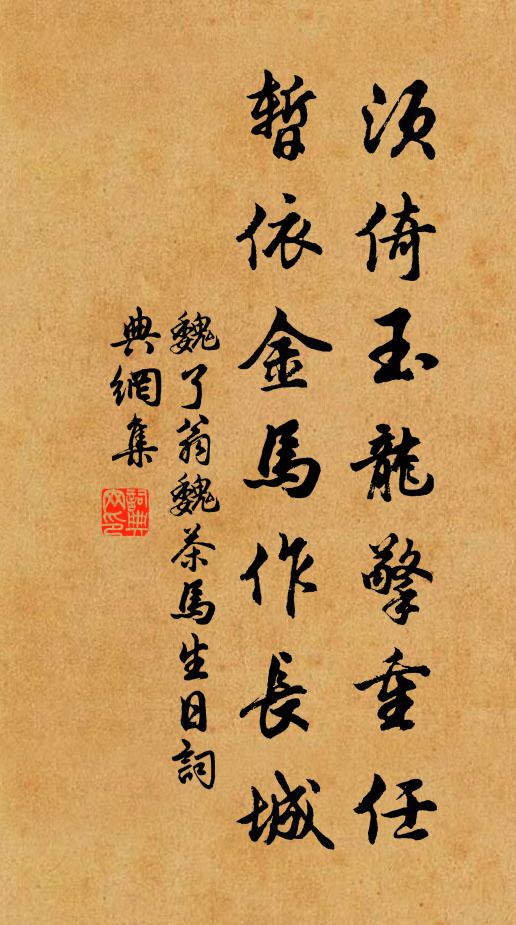 須倚玉龍擎重任
暫依金馬作長城
魏了翁魏茶馬生日詞
典網集
詞典網印